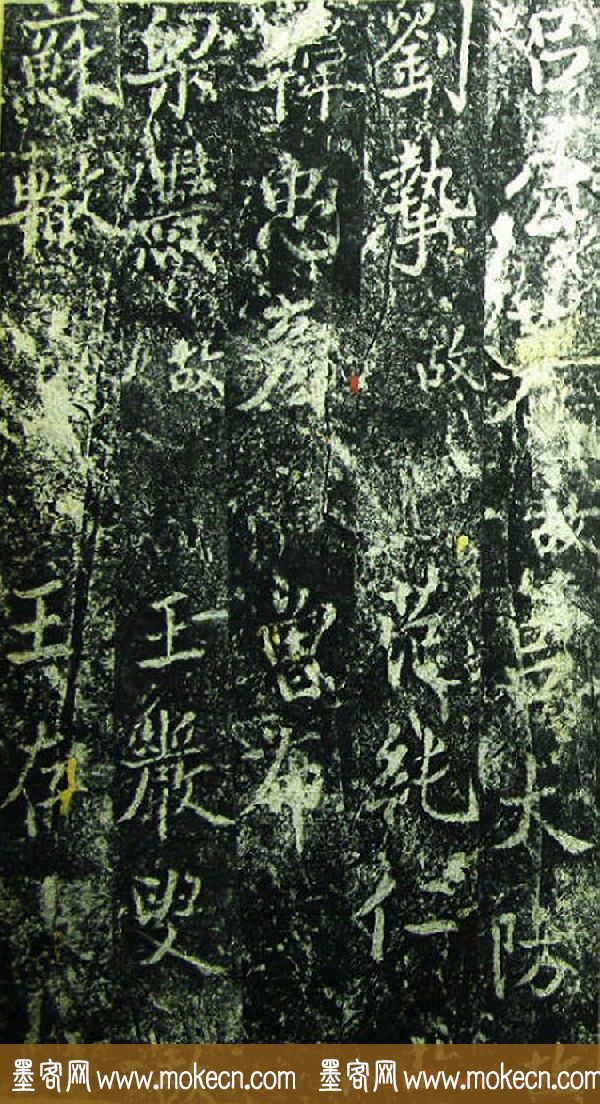 呂公著 故 呂大防
劉摯 故 范純仁
韓忠彥 曾布
梁燾 故 王巖叟
蘇轍 王存
墨客网 www.mokecn.com 墨客网 www.mokecn.com